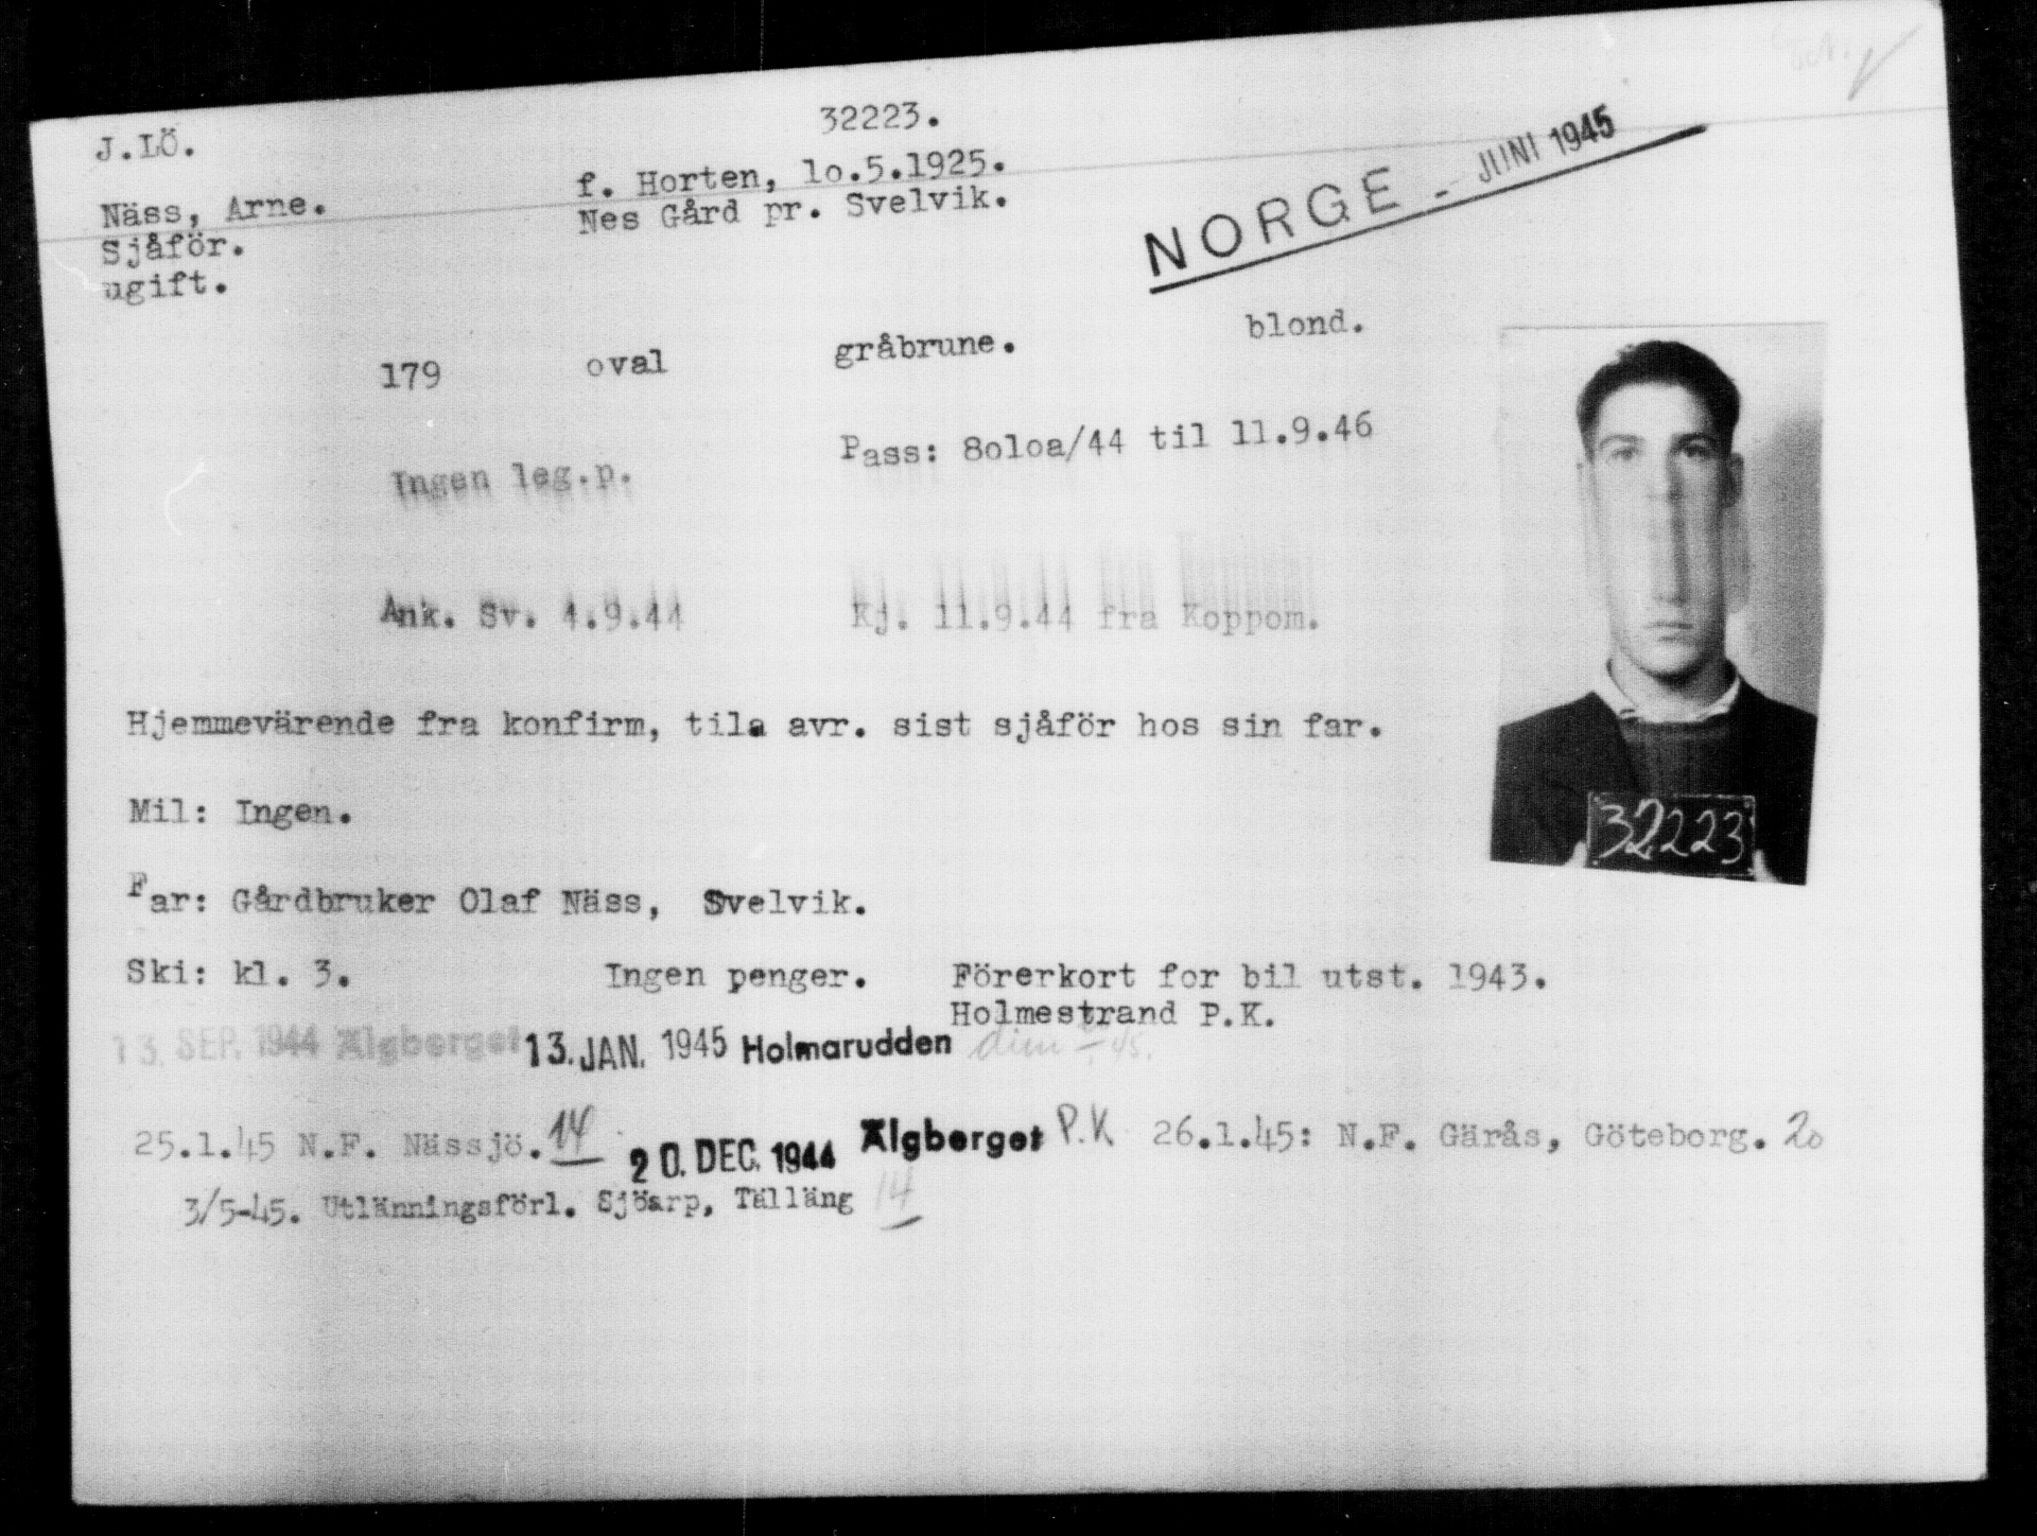 32223.
J.LÖ.
f. Horten, lo.5.1925.
Näss, Arne.
Nes Gård pr. Svelvik.
Sjåför.
ugift.
NORGE - JUNI 1945
179 oval gråbrune. blond.
Ingen leg.p. Pass: 8oloa/44 til 11.9.46
Ank. Sv. 4.9.44 Kj. 11.9.44 fra Koppom.
Hjemmevärende fra konfirm, tila avr. sist sjåför hos sin far.
Mil: Ingen.
32223
Far: Gårdbruker Olaf Näss, Svelvik.
Ski: kl. 3. Ingen penger. Förerkort for bil utst. 1943.
Holmestrand P.K.
13. SEP. 1944 Älgberget 13. JAN. 1945 Holmarudden
25.1.45 N.F. Nässjö. 14 20. DEC. 1944 Älgberget P.K 26.1.45: N.F. Gärås, Göteborg. 20
3/5-45. Utlänningsförl. Sjöarp, Tälläng 14